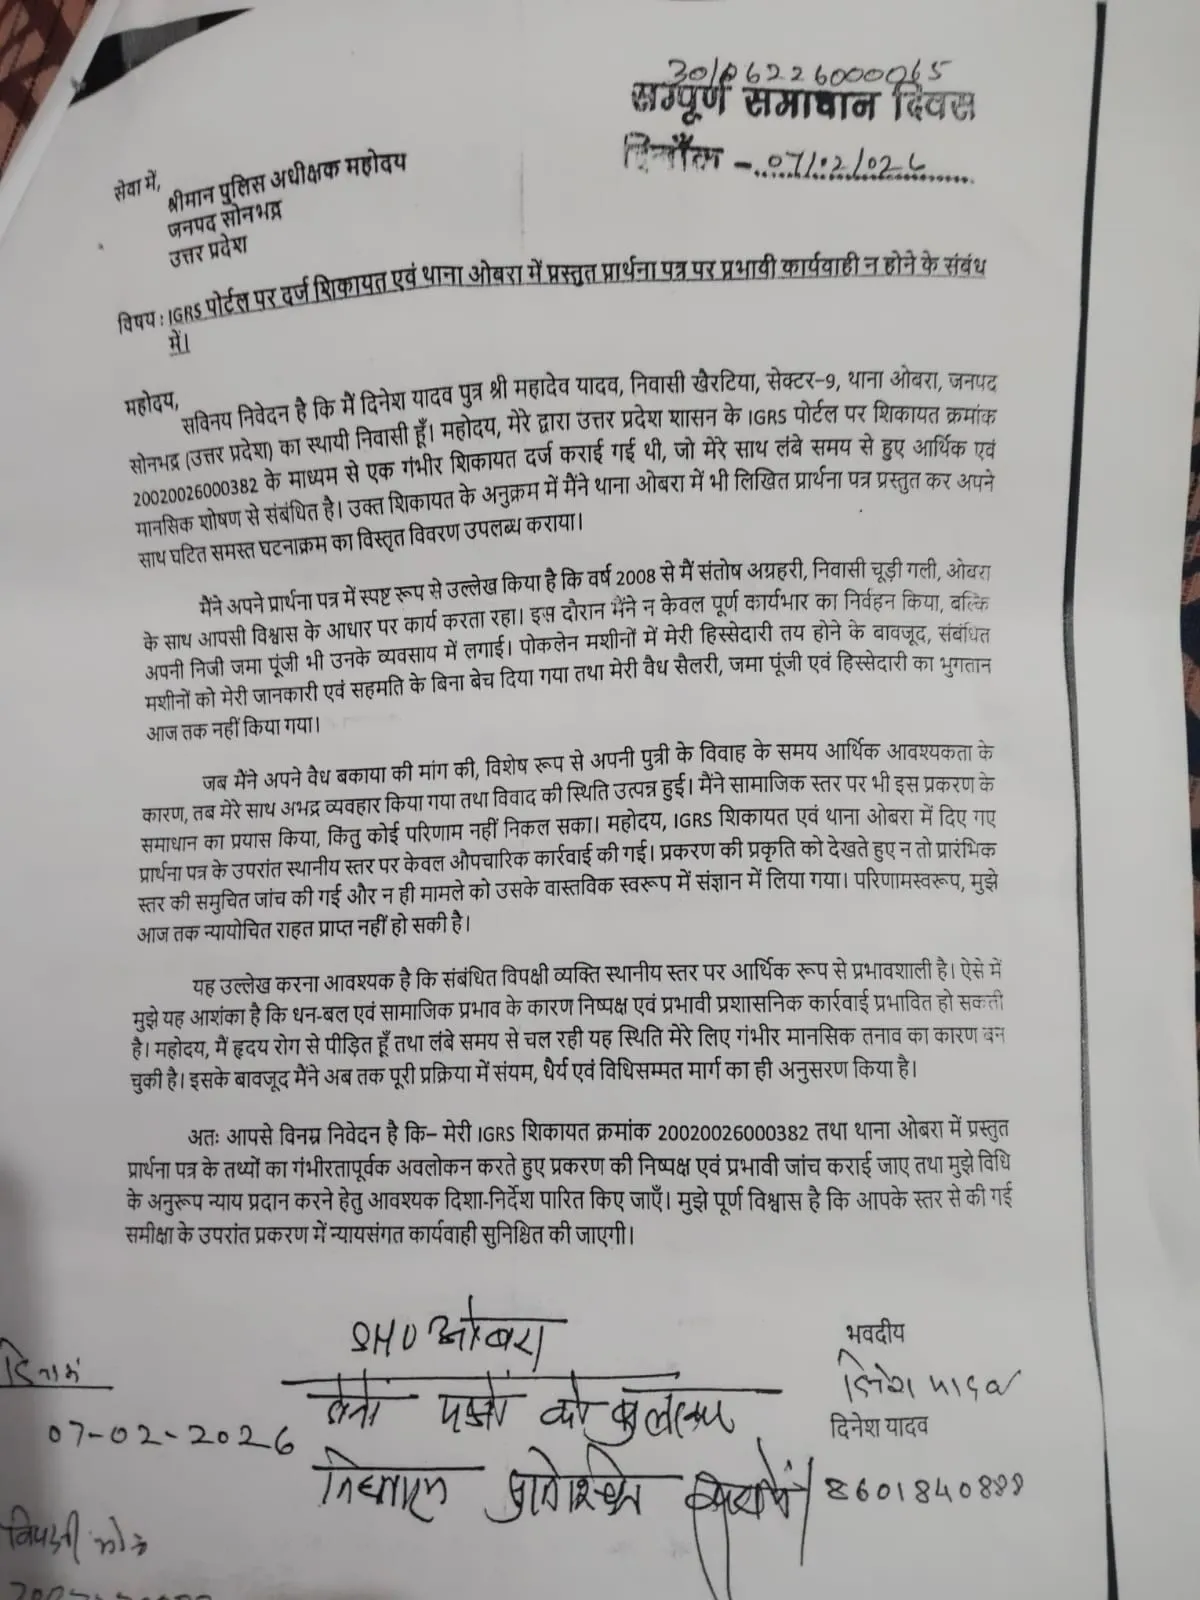 सम्पूर्ण समाधान दिवस
दिनाँक - 07/02/026
सेवा में,
श्रीमान पुलिस अधीक्षक महोदय
जनपद सोनभद्र
उत्तर प्रदेश
विषय : IGRS पोर्टल पर दर्ज शिकायत एवं थाना ओबरा में प्रस्तुत प्रार्थना पत्र पर प्रभावी कार्यवाही न होने के संबंध
में।
महोदय,
सविनय निवेदन है कि मैं दिनेश यादव पुत्र श्री महादेव यादव, निवासी खैरटिया, सेक्टर-9, थाना ओबरा, जनपद
सोनभद्र (उत्तर प्रदेश) का स्थायी निवासी हूँ। महोदय, मेरे द्वारा उत्तर प्रदेश शासन के IGRS पोर्टल पर शिकायत क्रमांक
20020026000382 के माध्यम से एक गंभीर शिकायत दर्ज कराई गई थी, जो मेरे साथ लंबे समय से हुए आर्थिक एवं
मानसिक शोषण से संबंधित है। उक्त शिकायत के अनुक्रम में मैंने थाना ओबरा में भी लिखित प्रार्थना पत्र प्रस्तुत कर अपने
साथ घटित समस्त घटनाक्रम का विस्तृत विवरण उपलब्ध कराया।
मैंने अपने प्रार्थना पत्र में स्पष्ट रूप से उल्लेख किया है कि वर्ष 2008 से मैं संतोष अग्रहरी, निवासी चूड़ी गली, ओबरा
के साथ आपसी विश्वास के आधार पर कार्य करता रहा। इस दौरान मैंने न केवल पूर्ण कार्यभार का निर्वहन किया, बल्कि
अपनी निजी जमा पूंजी भी उनके व्यवसाय में लगाई। पोकलेन मशीनों में मेरी हिस्सेदारी तय होने के बावजूद, संबंधित
मशीनों को मेरी जानकारी एवं सहमति के बिना बेच दिया गया तथा मेरी वैध सैलरी, जमा पूंजी एवं हिस्सेदारी का भुगतान
आज तक नहीं किया गया।
जब मैंने अपने वैध बकाया की मांग की, विशेष रूप से अपनी पुत्री के विवाह के समय आर्थिक आवश्यकता के
कारण, तब मेरे साथ अभद्र व्यवहार किया गया तथा विवाद की स्थिति उत्पन्न हुई। मैंने सामाजिक स्तर पर भी इस प्रकरण के
समाधान का प्रयास किया, किंतु कोई परिणाम नहीं निकल सका। महोदय, IGRS शिकायत एवं थाना ओबरा में दिए गए
प्रार्थना पत्र के उपरांत स्थानीय स्तर पर केवल औपचारिक कार्रवाई की गई। प्रकरण की प्रकृति को देखते हुए न तो प्रारंभिक
स्तर की समुचित जांच की गई और न ही मामले को उसके वास्तविक स्वरूप में संज्ञान में लिया गया। परिणामस्वरूप, मुझे
आज तक न्यायोचित राहत प्राप्त नहीं हो सकी है।
यह उल्लेख करना आवश्यक है कि संबंधित विपक्षी व्यक्ति स्थानीय स्तर पर आर्थिक रूप से प्रभावशाली है। ऐसे में
मुझे यह आशंका है कि धन-बल एवं सामाजिक प्रभाव के कारण निष्पक्ष एवं प्रभावी प्रशासनिक कार्रवाई प्रभावित हो सकती
है। महोदय, मैं हृदय रोग से पीड़ित हूँ तथा लंबे समय से चल रही यह स्थिति मेरे लिए गंभीर मानसिक तनाव का कारण बन
चुकी है। इसके बावजूद मैंने अब तक पूरी प्रक्रिया में संयम, धैर्य एवं विधिसम्मत मार्ग का ही अनुसरण किया है।
अतः आपसे विनम्र निवेदन है कि– मेरी IGRS शिकायत क्रमांक 20020026000382 तथा थाना ओबरा में प्रस्तुत
प्रार्थना पत्र के तथ्यों का गंभीरतापूर्वक अवलोकन करते हुए प्रकरण की निष्पक्ष एवं प्रभावी जांच कराई जाए तथा मुझे विधि
के अनुरूप न्याय प्रदान करने हेतु आवश्यक दिशा-निर्देश पारित किए जाएँ। मुझे पूर्ण विश्वास है कि आपके स्तर से की गई
समीक्षा के उपरांत प्रकरण में न्यायसंगत कार्यवाही सुनिश्चित की जाएगी।
SHO ओबरा
भवदीय
दिनेश यादव
दिनेश यादव
8601840888
दोनों पक्षों को बुलाकर
07-02-2026
विपक्षी